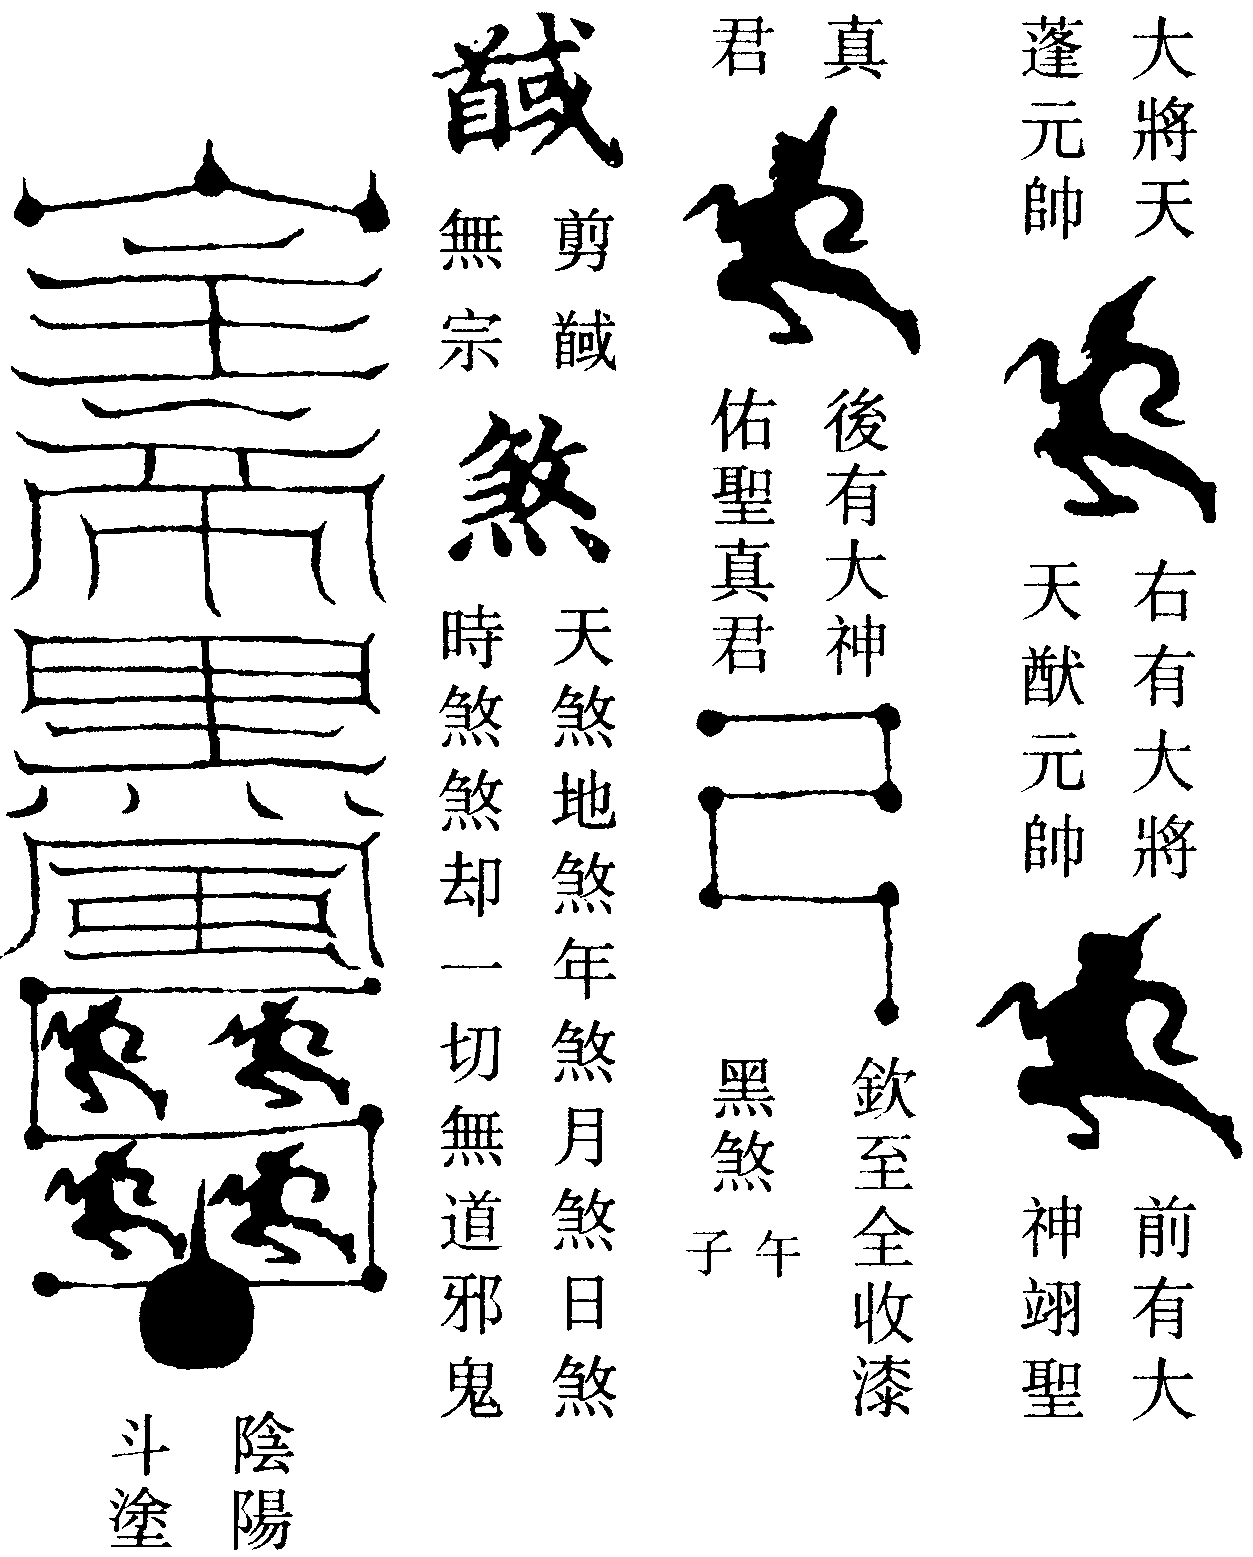 大將天
蓬元帥
右有大將
天猷元帥
前有大
神翊聖
真
君
後有大神
佑聖真君
欽至全收漆
黑煞
午
子
馘
剪馘
無宗
煞
天煞地煞年煞月煞日煞
時煞煞却一切無道邪鬼
陰陽
斗塗